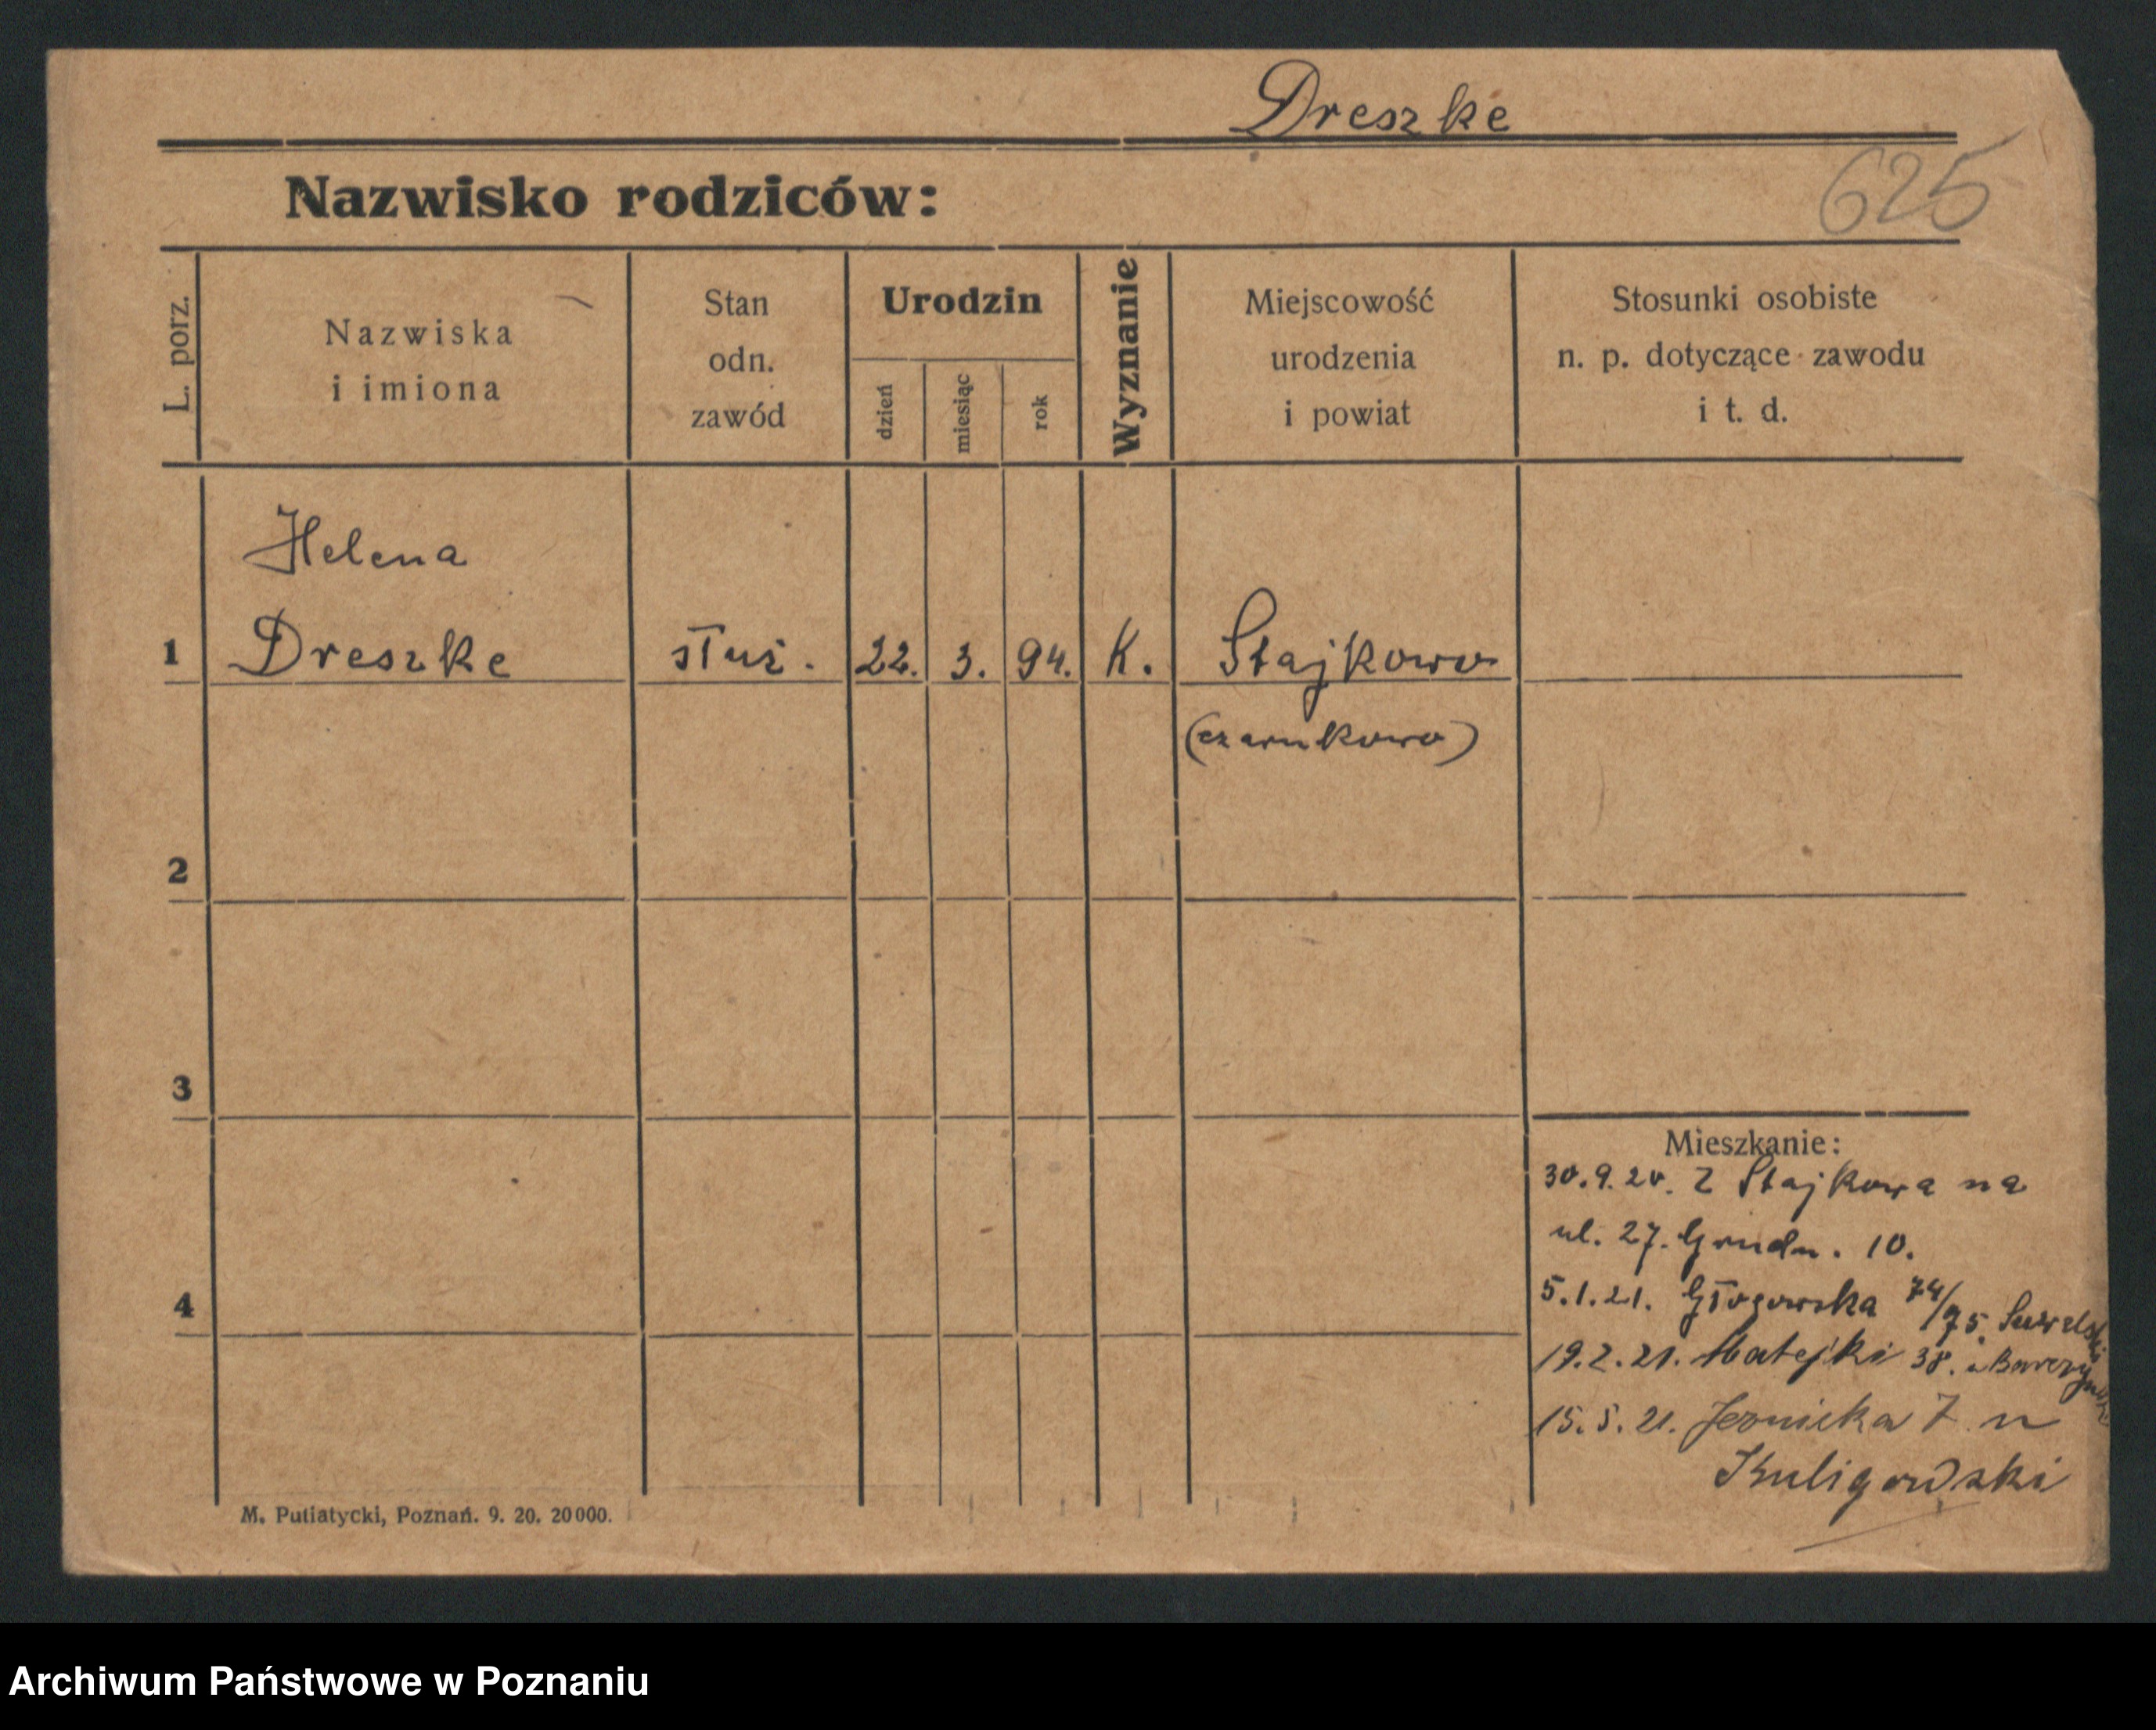 Dreszke
625
Nazwisko rodziców:
L. porz.
Nazwiska
i imiona
Stan
odn.
zawód
Urodzin
dzień
miesiąc
rok
Wyznanie
Miejscowość
urodzenia
i powiat
Stosunki osobiste
n. p. dotyczące zawodu
i t. d.
Helena
1 Dreszke służ. 22. 3. 94. K. Stajkowo
(czarnkowo)
2
3
4
Mieszkanie:
30.9.20. Z Stajkowa na
ul. 27. Grudn. 10.
5.1.21. Głogowska 74/75.
19.2.21. Matejki 38.
15.5.21. 7 u
Kuligowski
M. Putiatycki, Poznań. 9. 20. 20000.
Archiwum Państwowe w Poznaniu